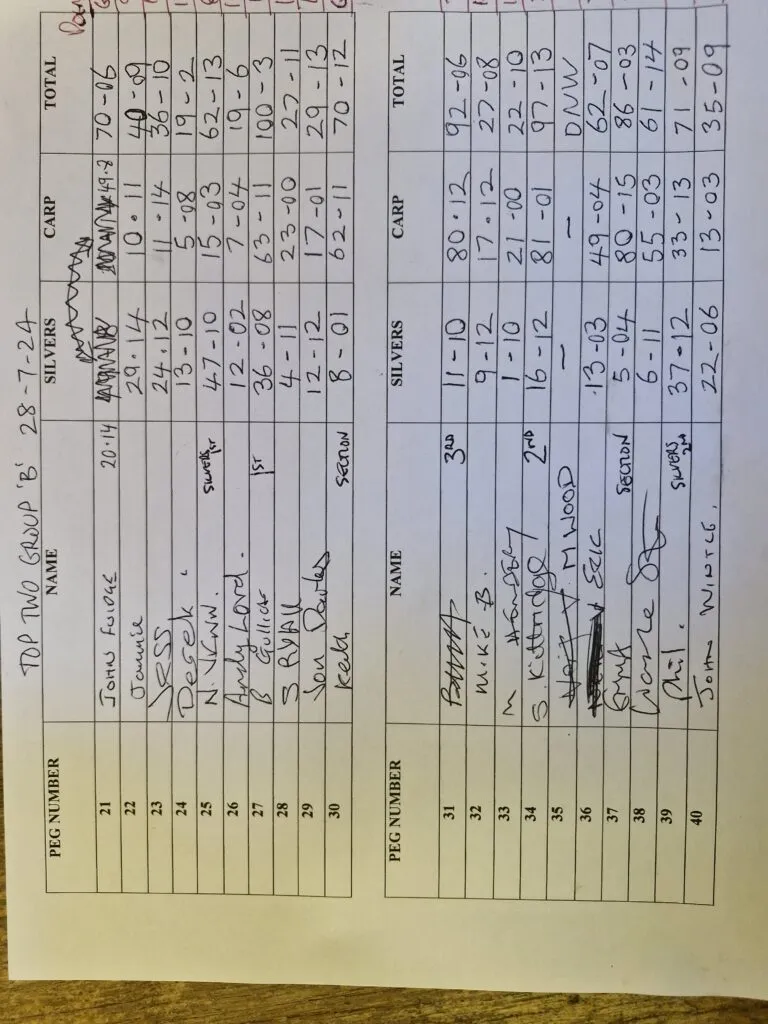 TOP TWO GROUP 'B' 28-7-24
PEG NUMBER NAME SILVERS CARP TOTAL
21 JOHN FUDGE 20.14 49-8 70-06
22 Jamie 29.14 10.11 40-09
23 JESS 24.12 11.14 36-10
24 Derek. 13-10 5-08 19-2
25 N. SILVERS 1ST 47-10 15-03 62-13
26 Andy Lord. 12-02 7-04 19-6
27 B Gullick 1ST 36-08 63-11 100-3
28 S RYAN 4-11 23-00 27-11
29 Jon Davies 12-12 17-01 29-13
30 Keith SECTION 8-01 62-11 70-12
PEG NUMBER NAME SILVERS CARP TOTAL
31 3RD 11-10 80.12 92-06
32 MIKE B. 9-12 17.12 27-08
33 M 1-10 21-00 22-10
34 S. Kittridge 2ND 16-12 81-01 97-13
35 M WOOD — — DNW
36 ERIC 13-03 49-04 62-07
37 SECTION 5-04 80-15 86-03
38 6-11 55-03 61-14
39 Phil. SILVERS 2ND 37.12 33-13 71-09
40 JOHN WINTLE. 22-06 13-03 35-09